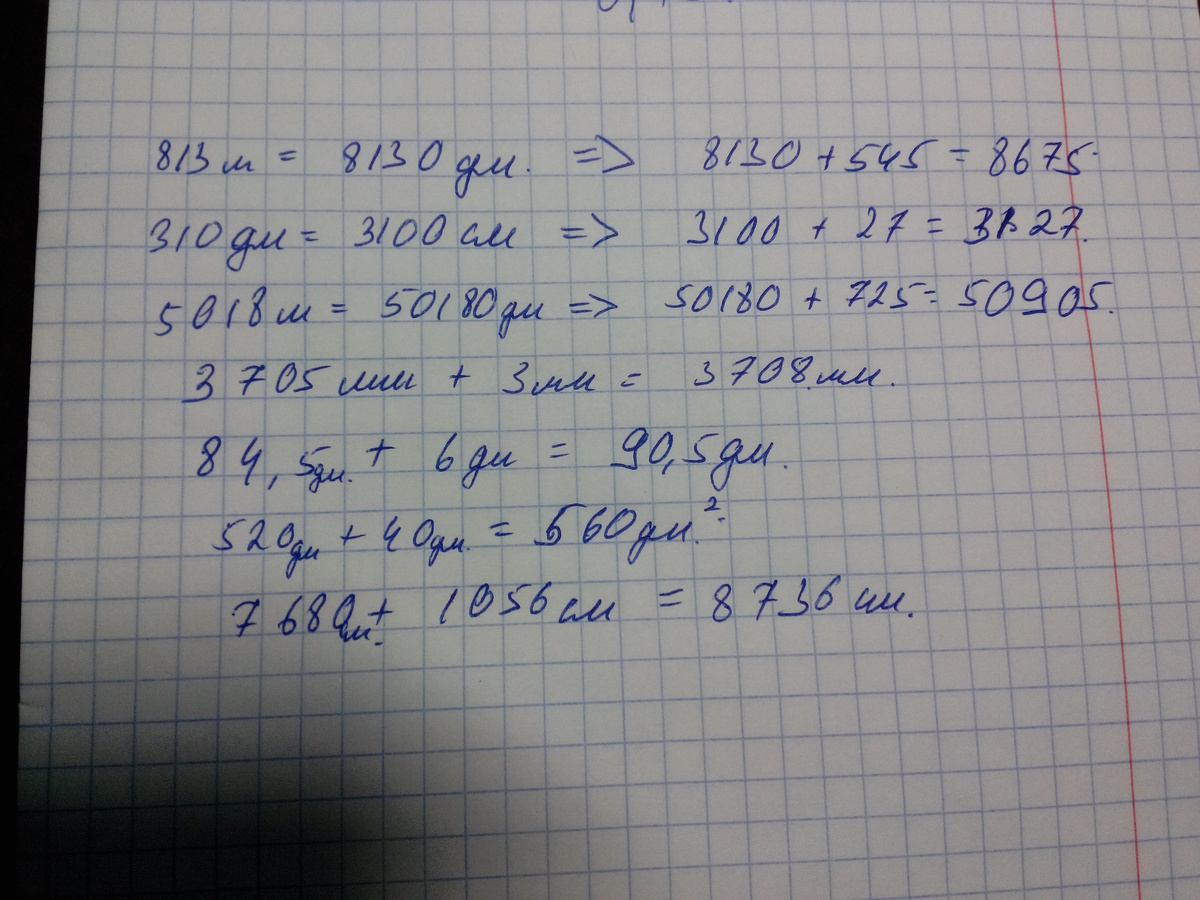 813 м = 8130 дм. => 8130 + 545 = 8675.
310 дм = 3100 см => 3100 + 27 = 3127.
5018 м = 50180 дм => 50180 + 725 = 50905.
3705 мм + 3 мм = 3708 мм.
84,5 дм. + 6 дм = 90,5 дм.
520 дм + 40 дм. = 560 дм.²
7680 м. + 1056 см = 8736 см.